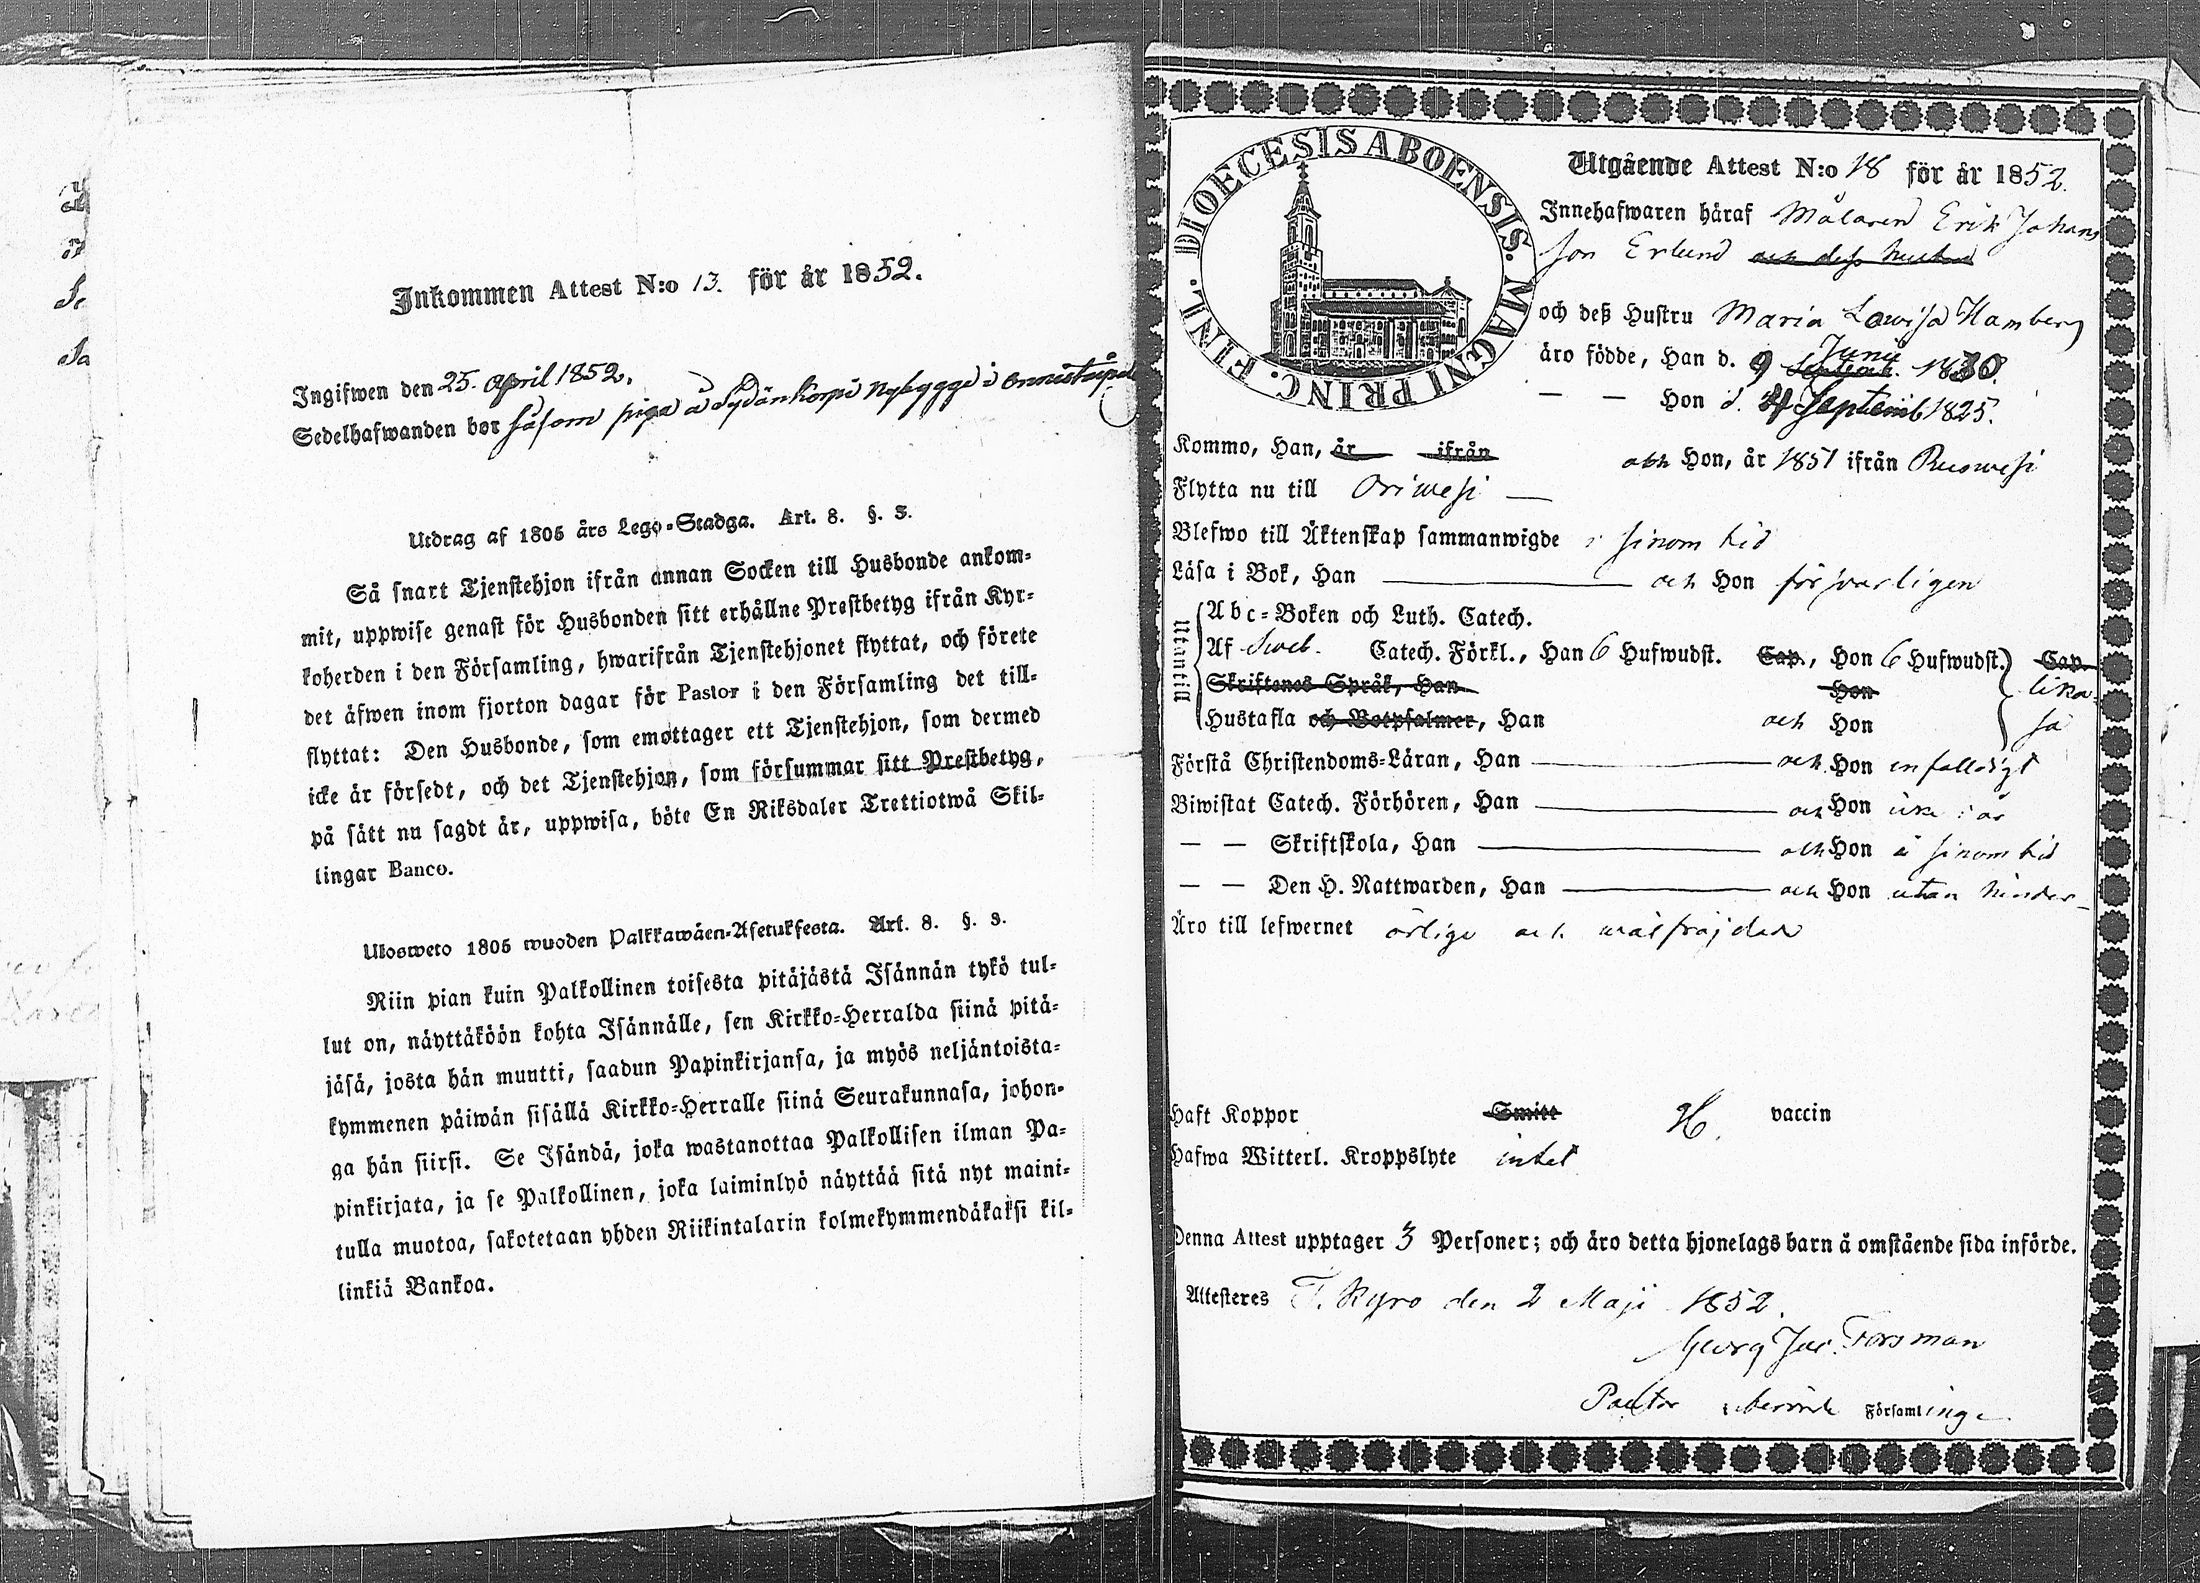 Inkommen Attest N:o 13. för år 1852.
Ingifwen den 25. April 1852.
Sedelhafwanden bor såsom piga å Sydänkorpi Nybygge i
Utdrag af 1805 års Lego-Stadga. Art. 8. §. 3.
Så snart Tjenstehjon ifrån annan Socken till Husbonde ankom-
mit, uppwise genast för Husbonden sitt erhållne Prestbetyg ifrån Kyr-
koherden i den Församling, hwarifrån Tjenstehjonet flyttat, och förete
det äfwen inom fjorton dagar för Pastor i den Församling det till-
flyttat: Den Husbonde, som emottager ett Tjenstehjon, som dermed
icke är försedt, och det Tjenstehjon, som försummar sitt Prestbetyg,
på sätt nu sagdt är, uppwisa, böte En Riksdaler Trettiotwå Skil-
lingar Banco.
Ulosweto 1805 wuoden Palkkawäen-Asetuksesta. Art. 8. §. 3.
Niin pian kuin Palkollinen toisesta pitäjästä Isännän tykö tul-
lut on, näyttäköön kohta Isännälle, sen Kirkko-Herralda siinä pitä-
jäsä, josta hän muutti, saadun Papinkirjansa, ja myös neljäntoista-
kymmenen päiwän sisällä Kirkko-Herralle siinä Seurakunnasa, johon-
ga hän siirsi. Se Isändä, joka wastanottaa Palkollisen ilman Pa-
pinkirjata, ja se Palkollinen, joka laiminlyö näyttää sitä nyt maini-
tulla muotoa, sakotetaan yhden Riikintalarin kolmekymmendäkaksi kil-
linkiä Bankoa.
DIOECESIS ABOENSIS. MAGNI PRINC. FINL.
Utgående Attest N:o 18 för år 1852.
Innehafwaren häraf Målaren Erik Johans
son Erlund och dess hustru
och deß Hustru Maria Lowisa Hamberg
äro födde, Han d. 9 Juny 1830.
— — Hon d. Septemb 1825.
Kommo, Han, år ifrån och Hon, år 1851 ifrån Ruowesi
Flytta nu till Oriwesi —
Blefwo till Äktenskap sammanwigde i sinom tid
Läsa i Bok, Han och Hon försvarligen
Utantill
Abc-Boken och Luth. Catech.
Af Sweb. Catech. Förkl., Han 6 Hufwudst. Cap., Hon 6 Hufwudst. Cap.
Skriftenes Språk, Han Hon lika-
Hustafla och Botpsalmer, Han och Hon så
Förstå Christendoms-Läran, Han och Hon enfalldigt
Biwistat Catech. Förhören, Han och Hon icke i år
— — Skriftskola, Han och Hon i sinom tid
— — Den H. Nattwarden, Han och Hon utan hinder
Äro till lefwernet ärlige och wälfräjdade
Haft Koppor Smitt H. vaccin
Hafwa Witterl. Kroppslyte intet
Denna Attest upptager 3 Personer; och äro detta hjonelags barn å omstående sida införde.
Attesteres T. Kyro den 2 Maji 1852.
Georg Jac. Forsman
Pastor Församlinge